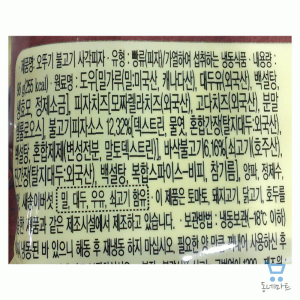 제품명: 오뚜기 불고기 사각피자 · 유형: 빵류(피자/가열하여 섭취하는 냉동식품 · 내용량:
(255 kcal) · 원료명: 도우[밀가루(밀:미국산, 캐나다산), 대두유(외국산), 백설탕,
정제소금], 피자치즈[모짜렐라치즈(외국산), 고다치즈(외국산), 분말
셀룰로우스], 불고기피자소스 12.32%[덱스트린, 물엿, 혼합간장(탈지대두:외국산),
백설탕, 혼합제제(변성전분, 말토덱스트린)], 바싹불고기6.16%[쇠고기(호주산),
간장(탈지대두:외국산), 백설탕, 복합스파이스-비피, 참기름], 양파, 정제수,
새송이버섯 밀, 대두, 우유, 쇠고기 함유 이 제품은 토마토, 돼지고기, 닭고기, 호두,
새우 같은 제조시설에서 제조하고 있습니다. · 보관방법: 냉동보관(-18℃ 이하)
바 있으니 해동 후 재냉동 하지 마십시오. 필요한 양 만큼 꺼내어 사용하신 후
동네마트